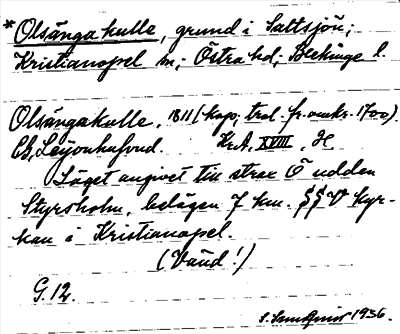 * Olsängakulle, grund i Saltsjön;
Kristianopel sn; Östra hd, Blekinge l.
Olsängakulle, 1811 (kop; trol. fr. omkr. 1700)
Leijonhufvud KrA, XVIII, H
Läget angivet till strax Ö udden
Styrsholm, belägen 7 km. SSV kyr-
kan i Kristianopel.
(Vänd!)
G. 12.
1936.